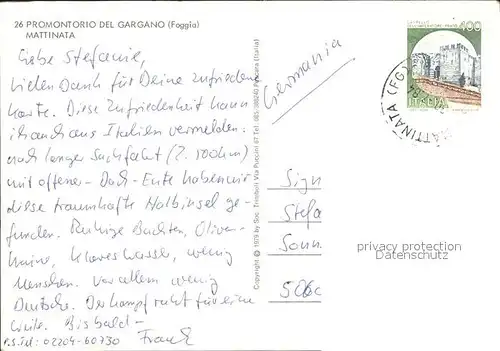 26 PROMONTORIO DEL GARGANO (Foggia)
MATTINATA
Liebe Stefanie,
vielen Dank für Deine Zufrieden
karte. Diese Zufriedenheit kann
ich auch aus Italien vermelden:
nach langer Suchfahrt (2.100km)
mit offener-Dach-Ente haben wir
diese traumhafte Halbinsel ge-
funden. Ruhige Buchten, Oliven-
haine, klares Wasser, wenig
Menschen. Vor allem wenig
Deutsche. Der Kampf ruht für eine
Weile. Bis bald-
Frank
P.S.id: 02204-60730
Copyright © 1979 by Soc. Trimboli Via Puccini 67 Tel. 085 Pescara (Italia)
Germania
400
ITALIA
MATTINATA (FG)
Sign
Stefa
Sonn
506
privacy protection
Datenschutz